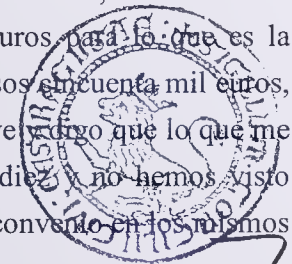 uros para lo que es la
sos cincuenta mil euros,
ve y digo que lo que me
diez y no hemos visto
convenio en los mismos
SIGILLUM